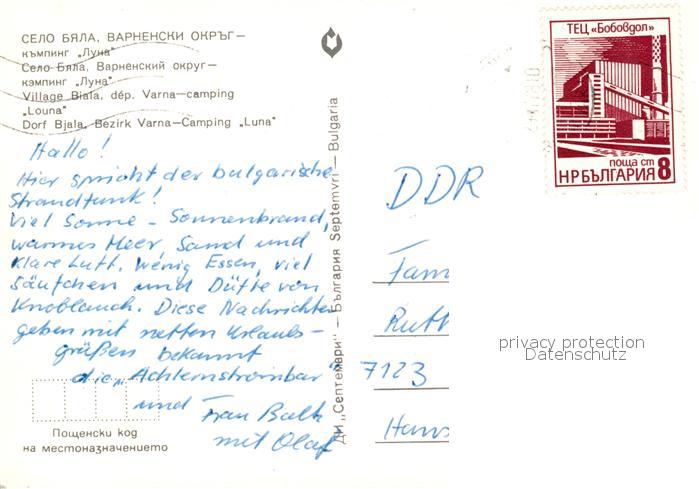 СЕЛО БЯЛА, ВАРНЕНСКИ ОКРЪГ—
къмпинг „Луна"
Село Бяла, Варненский округ—
кэмпинг „Луна"
Village Biala, dép. Varna—camping
„Louna"
Dorf Bjala, Bezirk Varna—Camping „Luna"
Hallo!
Hier spricht der bulgarische
Strandfunk!
Viel Sonne - Sonnenbrand,
warmes Meer, Sand und
klare Luft. Wenig Essen, viel
Säufchen und Düfte von
Knoblauch. Diese Nachrichten
geben mit netten Urlaubs-
grüßen bekannt
die
und Frau
mit Olaf
Пощенски код
на местоназначението
ДИ „Септември" — България Septemvri — Bulgaria
ТЕЦ «Бобовдол»
поща ст
НР БЪЛГАРИЯ 8
DDR
Fam
Rutt
7123
Hans
privacy protection
Datenschutz